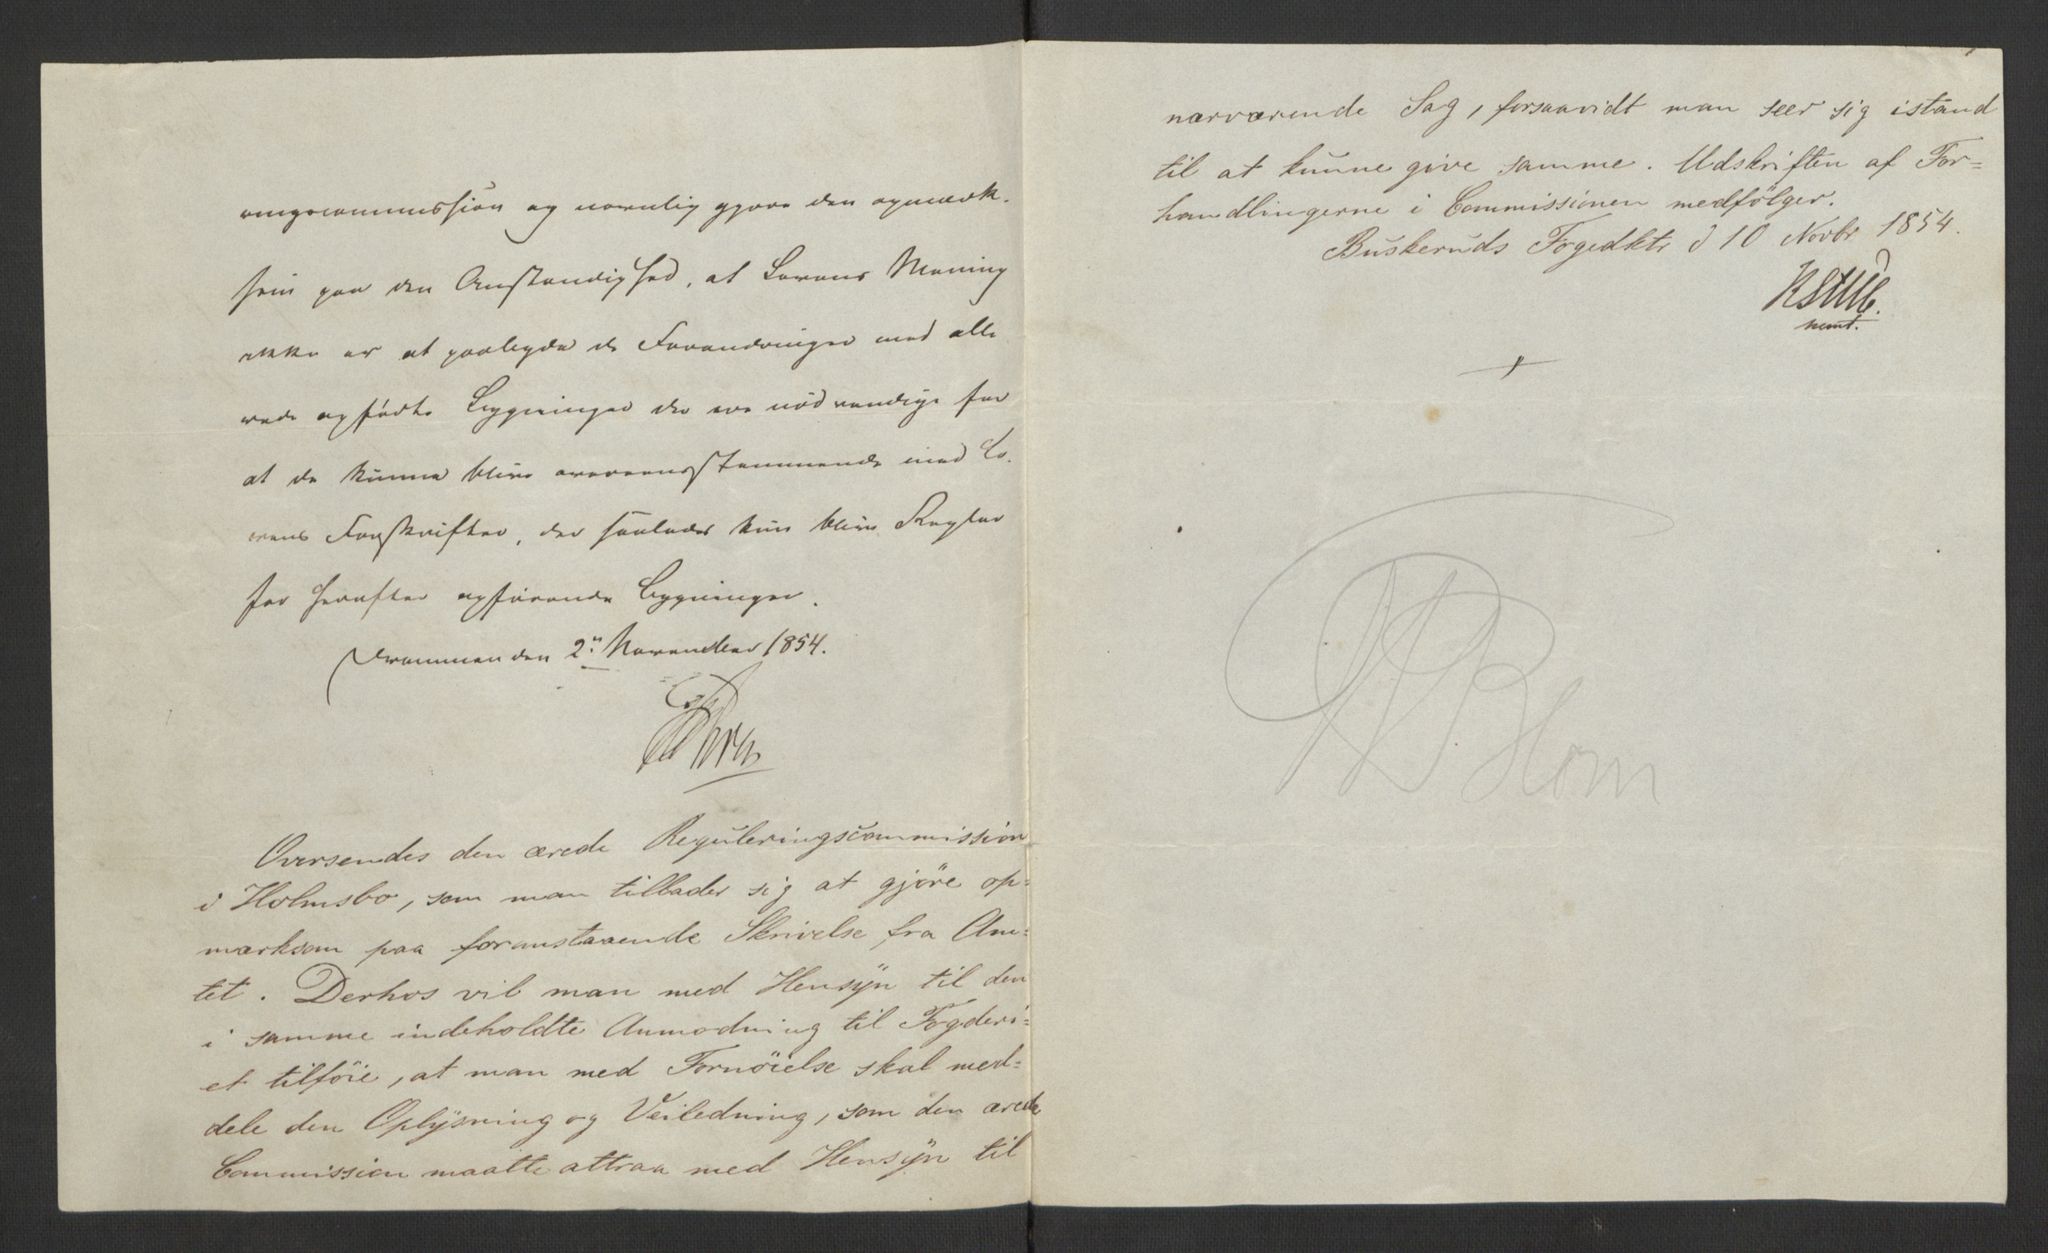 ringscommission og navnlig gjøre den opmærk-
som paa den Omstændighed, at Lovens Mening
ikke er at paabyde de Forandringer med alle-
rede opførte Bygninger der ere nødvendige for
at de kunne blive overeensstemmende med Lo-
vens Forskrifter, der saaledes kun blive Regler
for herefter opførende Bygninger.
Drammen den 2n November 1854.
Oversendes den ærede Reguleringscommission
i Holmsbo, som man tillader sig at gjöre op=
mærksom paa foranstaaende Skrivelse fra Am=
tet. Derhos vil man med Hensÿn til den
i samme indeholdte Anmodning til Fogderi=
et tilföie, at man med Fornöielse skal med=
dele den Oplÿsning og Veiledning, som den ærede
Commission maatte attraa med Hensÿn til
nærværende Sag, forsaavidt man seer sig istand
til at kunne give samme. Udskriften af For=
handlingerne i Commissionen medfölger.
Buskeruds Fogedkt d 10 Novbr 1854.
const.
Blom